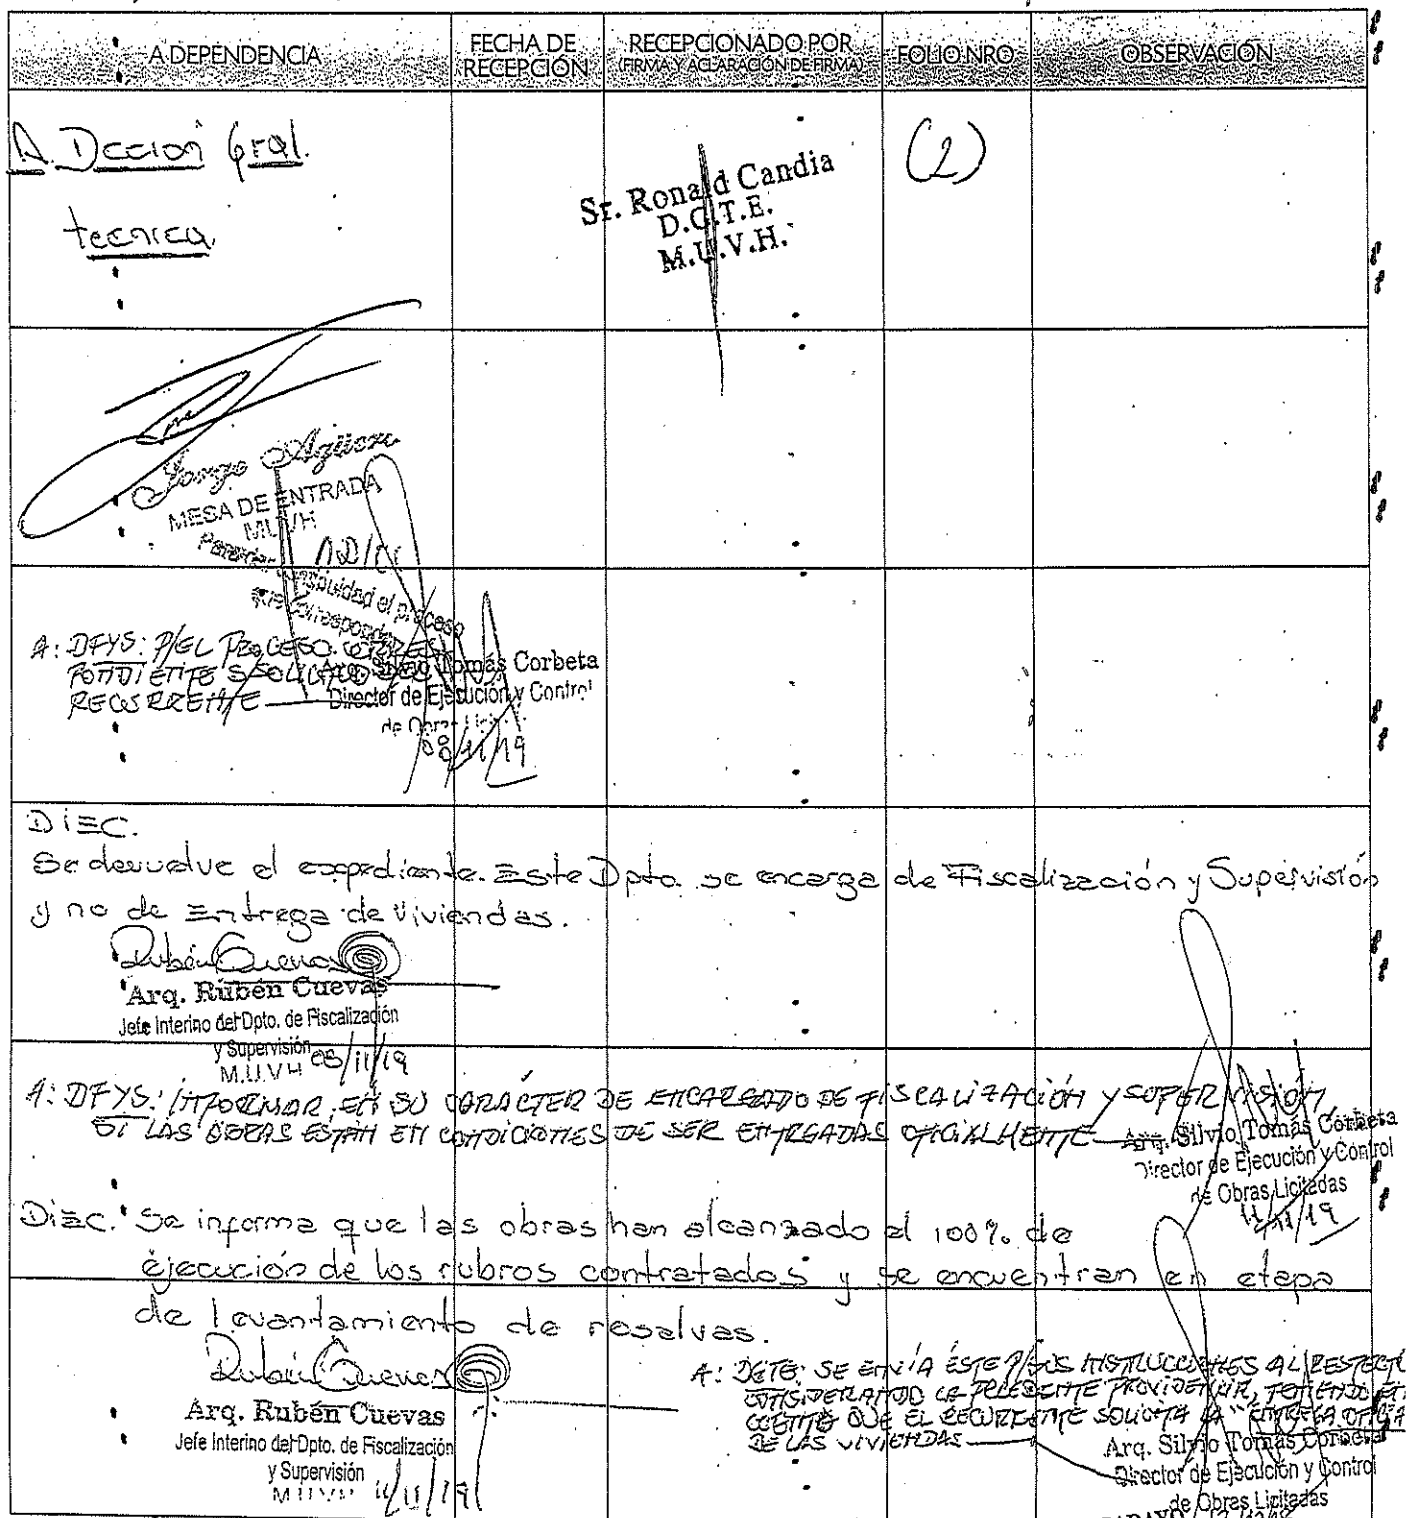 A DEPENDENCIA
FECHA DE RECEPCIÓN
RECEPCIONADO POR
(FIRMA Y ACLARACIÓN DE FIRMA)
FOLIO NRO
OBSERVACIÓN
A. Dccion Gral.
tecnica
Sr. Ronald Candia
D.G.T.E.
M.U.V.H.
(2)
Jorge Agüero
MESA DE ENTRADA
MUVH
el proceso
A: DFYS: P/EL PROCESO CORRES
PONDIENTE S/SOLICITUD
RECURRENTE
Arq. Silvio Tomás Corbeta
Director de Ejecución y Control
de Obras
08/11/19
DIEC.
Se devuelve el expediente. Este Dpto. se encarga de Fiscalización y Supervisión
y no de Entrega de Viviendas.
Rubén Cuevas
Arq. Rubén Cuevas
Jefe Interino del Dpto. de Fiscalización
y Supervisión
M.U.V.H 08/11/19
A: DFYS: INFORMAR, EN SU CARÁCTER DE ENCARGADO DE FISCALIZACIÓN Y SUPERVISIÓN,
SI LAS OBRAS ESTÁN EN CONDICIONES DE SER ENTREGADAS OFICIALMENTE
Arq. Silvio Tomás Corbeta
Director de Ejecución y Control
de Obras Licitadas
11/11/19
DIEC. Se informa que las obras han alcanzado el 100% de
ejecución de los rubros contratados y se encuentran en etapa
de levantamiento de resalvas.
Rubén Cuevas
Arq. Rubén Cuevas
Jefe Interino del Dpto. de Fiscalización
y Supervisión
M.U.V.H 11/11/19
A: DGTE: SE ENVÍA ÉSTE P/SUS INSTRUCCIONES AL RESPECTO
CONSIDERANDO LA PRECEDENTE PROVIDENCIA, TENIENDO EN
CUENTA QUE EL RECURRENTE SOLICITA LA "ENTREGA OFICIA
DE LAS VIVIENDAS
Arq. Silvio Tomás Corbeta
Director de Ejecución y Control
de Obras Licitadas